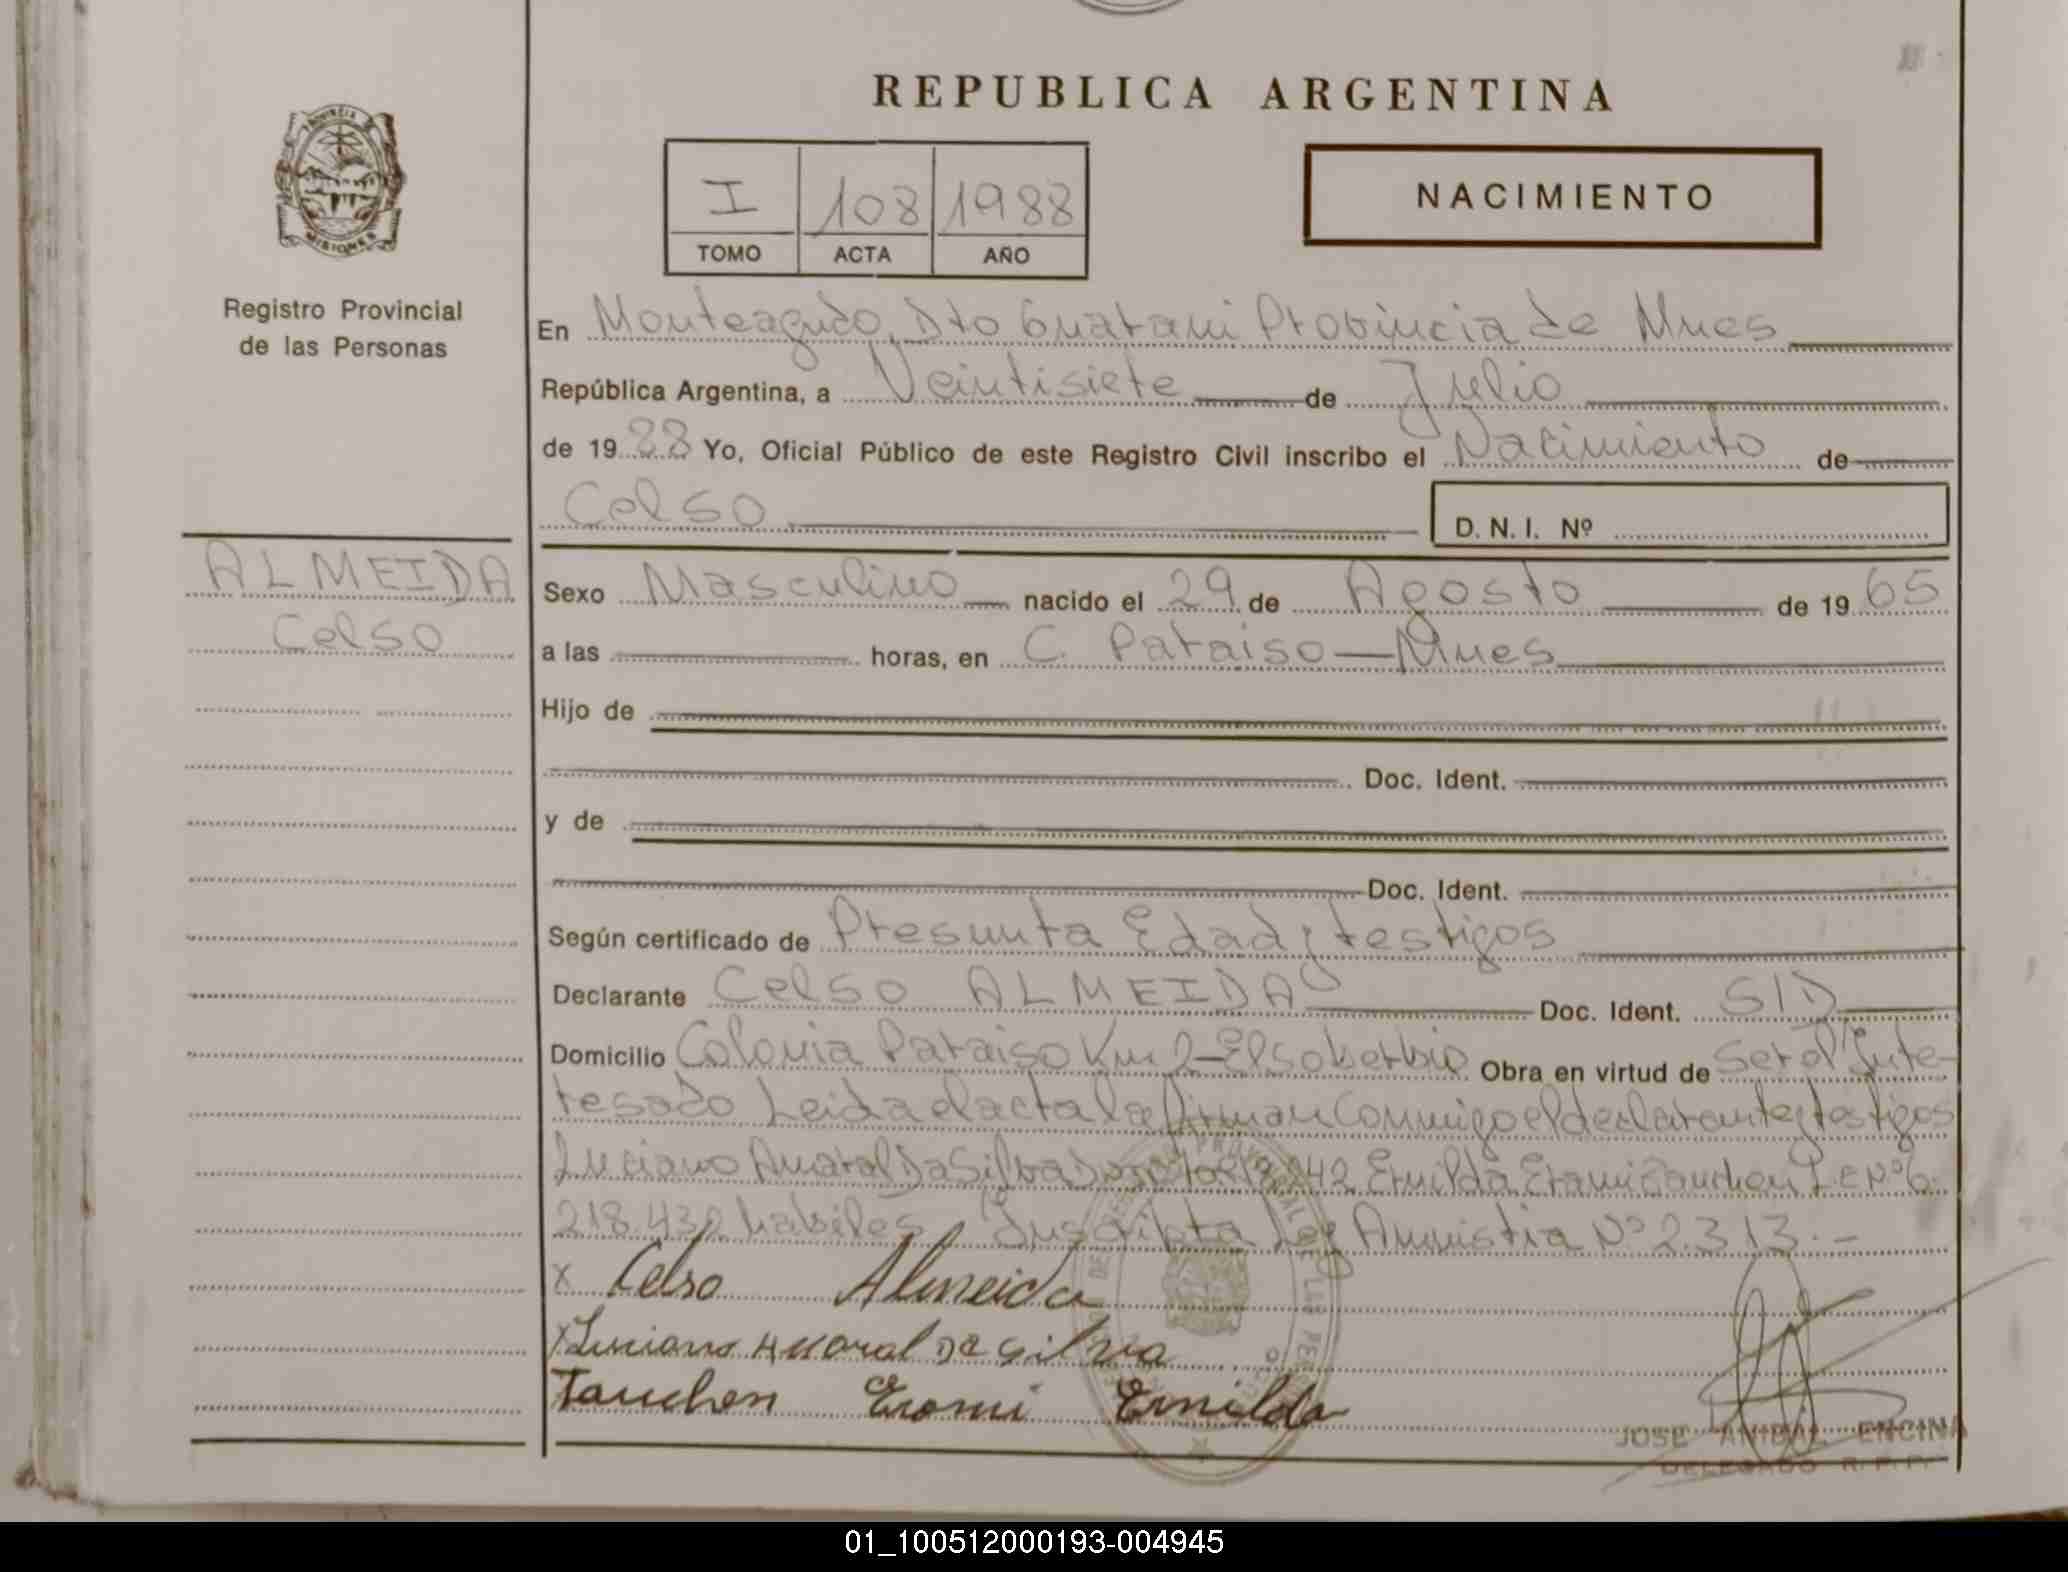 REPUBLICA ARGENTINA
PROVINCIA DE
MISIONES
Registro Provincial
de las Personas
I 108 1988
TOMO ACTA AÑO
NACIMIENTO
En Monteagudo, Dto Guarani Provincia de Mnes
República Argentina, a Veintisiete de Julio
de 1988 Yo, Oficial Público de este Registro Civil inscribo el Nacimiento de
Celso D. N. I. Nº
ALMEIDA
Celso
Sexo Masculino nacido el 29 de Agosto de 1965
a las horas, en C. Paraiso — Mnes
Hijo de
Doc. Ident.
y de
Doc. Ident.
Según certificado de Presunta Edad y testigos
Declarante Celso ALMEIDA Doc. Ident. S/D
Domicilio Colonia Paraiso Km 2 - El soberbio Obra en virtud de Ser el Inte-
resado Leida el acta la firman Conmigo el declarante y testigos
Luciano Amaral Da Silva Ermilda Erami Tauchen L E Nº 6.
218.432 habiles Inscripta Ley Amnistia Nº 2.313.-
x Celso Almeida
x Luciano Amaral Da Silva
Tauchen Erami Ermilda
JOSE ANIBAL ENCINA
DELEGADO R. P. P.
01_100512000193-004945